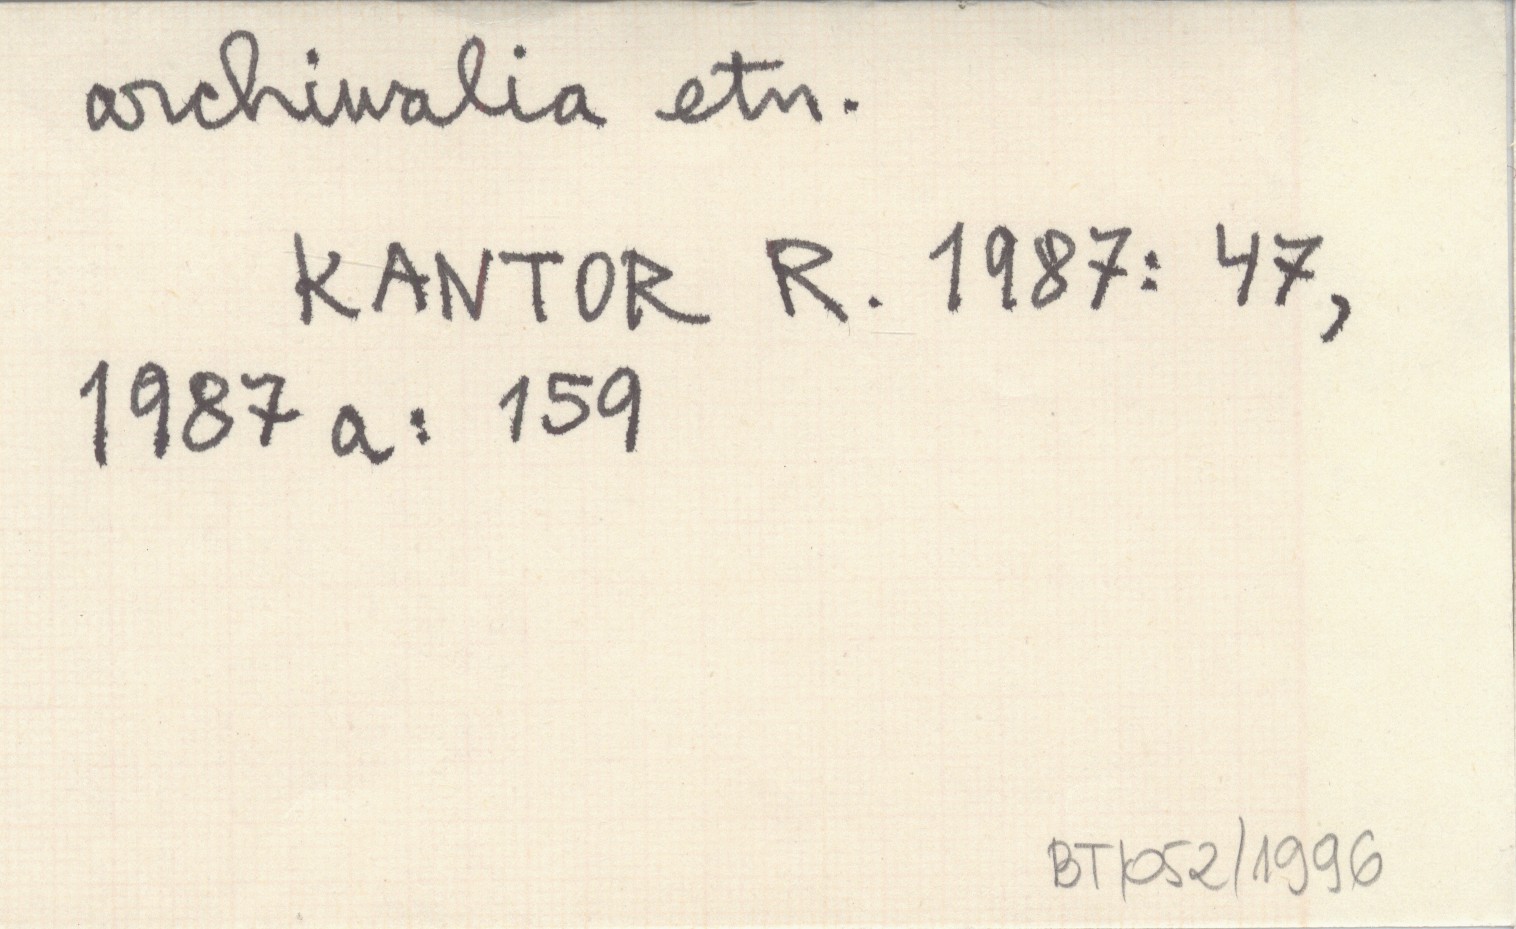 archiwalia etn.
KANTOR R. 1987: 47,
1987 a: 159
BT/052/1996